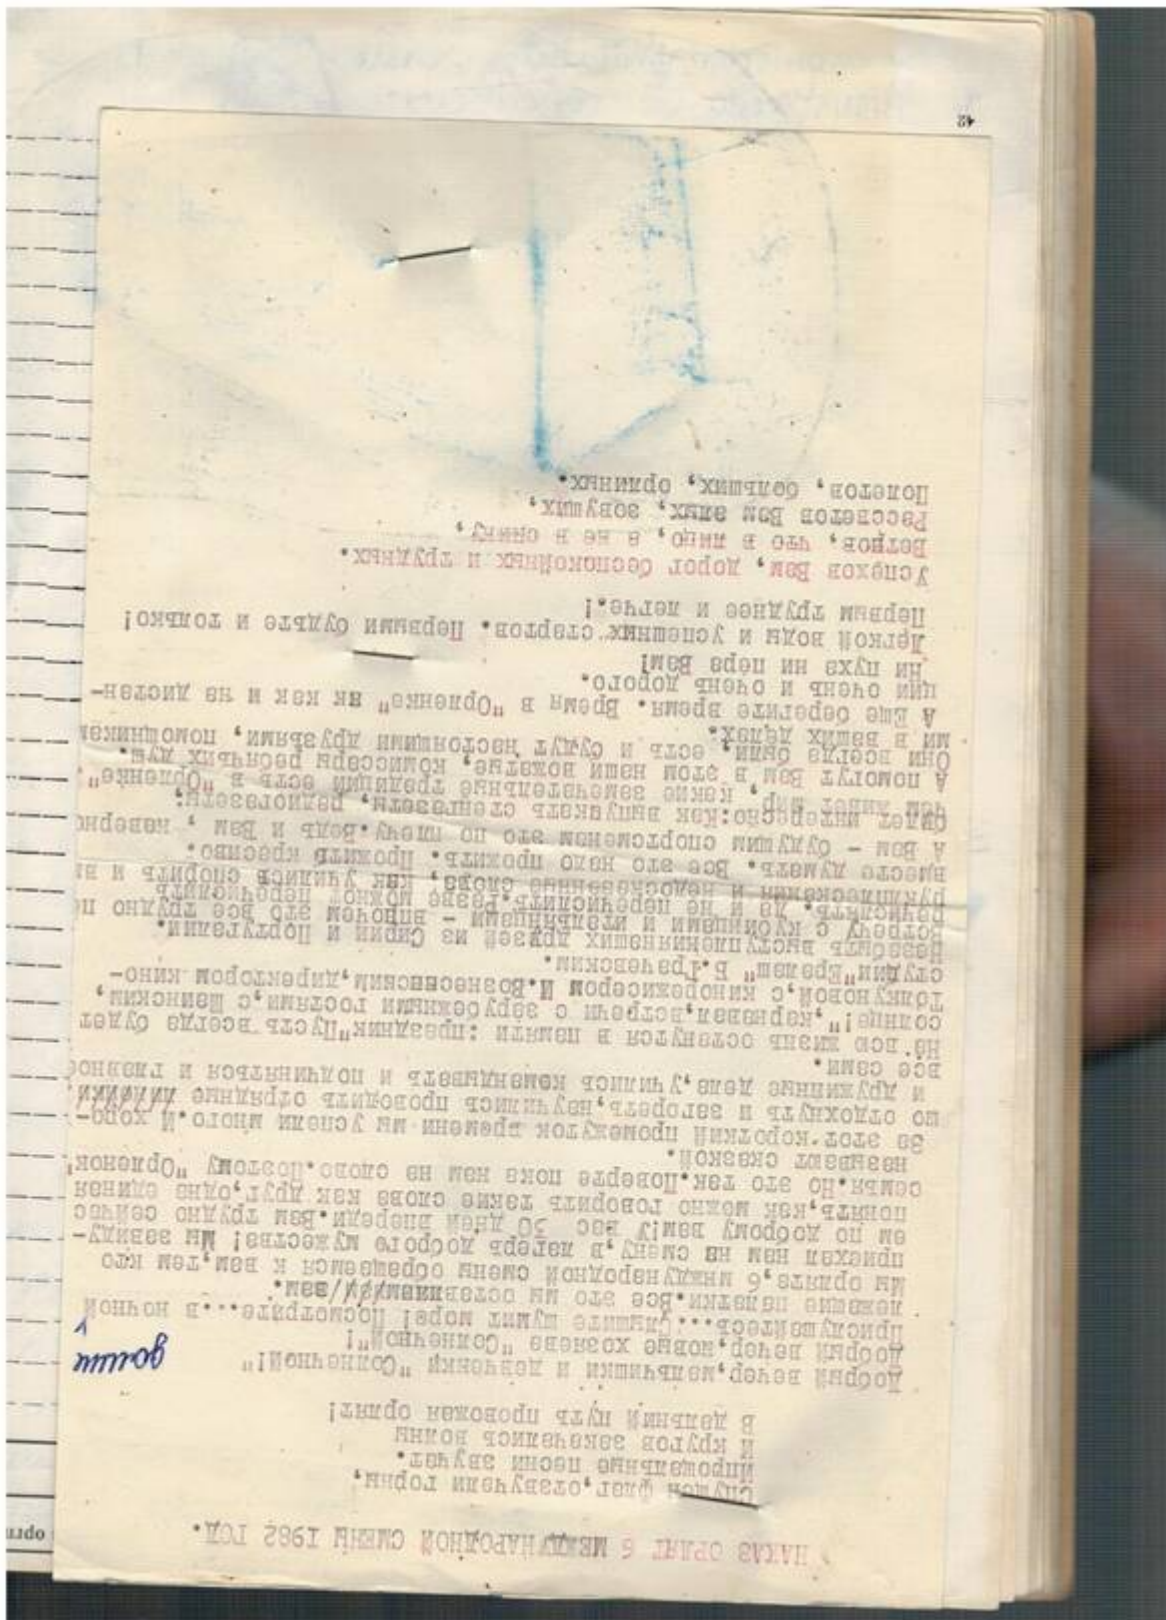 НАКАЗ ОРЛЯТ 6 МЕЖДУНАРОДНОЙ СМЕНЫ 1982 ГОД.
Спущен флаг, отзвучали горны,
Ипрощальные песни звучат.
И кругов закачались волны
В дальний путь провожая орлят!
Добрый вечер, мальчишки и девчонки "Солнечной!"
Добрый вечер, новые хозяева "Солнечной"!
долине
Прислушайтесь... Слышите шумит море! Посмотрите... в ночной
лежащие палатки. Все это мы оставляем вам.
Мы орлята, 6 международной смены обращаемся к вам, тем кто
приехал нам на смену, в лагерь доброго мужества! Мы завиду-
ем по доброму вам! У вас 30 дней впереди. Вам трудно сейчас
понять, как можно говорить такие слова как друг, одна единая
семья. Но это так. Поверте пока нам на слово. Поэтому "Орленок"
называют сказкой.
За этот короткий промежуток времени мы успели много. И хоро-
шо отдохнуть и загореть, научились проводить отрядные линейки,
и дружинные дела, учились командывать и подчиняться и главное
все сами.
На всю жизнь останутся в памяти: праздник "Пусть всегда будет
солнце!", карнавал, встречи с зарубежными гостями, с Шаинским,
Толкуновой, с кинорежисером И. Вознесенским, директором кино-
студии "Ералаш" Б. Грачевским.
Незабыть выступлениянаших друзей из Сирии и Португалии.
Встречу с кубинцами и итальянцами - впрочем это все трудно пе
речислить. Да и не перечислить. Разве можног перечислить
рукиплескания и недосказанные слова, как учились спорить и вм
вместе думать. Все это надо прожить. Прожить красиво.
А Вам - будущим спортсменам это по плечу. Ведь и Вам, наверно
будет интересно: как выпускать стенгазеты, радиогазеты,
чем живет мир, какие замечательные традиции есть в "Орленке".
А помогут Вам в этом наши вожатые, комиссары ребячьих душ.
Они всегда были, есть и будут настоящими друзьями, помощникам
ми в ваших делах.
А Еще берегите время. Время в "Орленке" як как и на дистан-
ции очень и очень дорого.
ни пуха ни пера Вам!
Легкой воды и успешных стартов. Первыми будьте и только!
Первым труднее и легче.!
Успехов Вам, дорог беспокойных и трудных.
Ветров, что в лицо, а не в спину,
Рассветов Вам алых, зовущих,
Полетов, больших, орлиных.
42